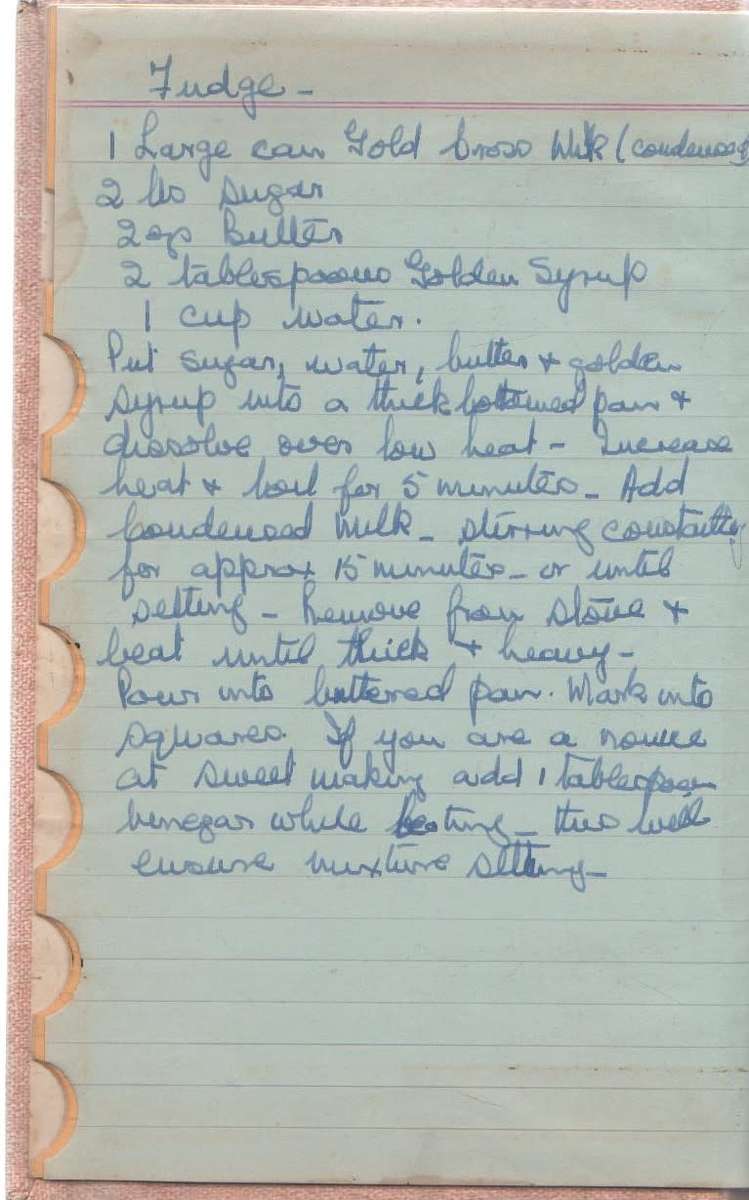 Fudge -
1 Large can Gold Cross Milk (condensed)
2 lbs Sugar
2 ozs Butter
2 tablespoons Golden Syrup
1 cup water.
Put sugar, water, butter & golden
syrup into a thick bottomed pan &
dissolve over low heat - Increase
heat & boil for 5 minutes - Add
Condensed Milk - stirring constantly
for approx 15 minutes - or until
setting - Remove from stove &
beat until thick & heavy -
Pour into buttered pan. Mark into
squares. If you are a novice
at sweet making add 1 tablespoon
vinegar while beating - this will
ensure mixture setting -